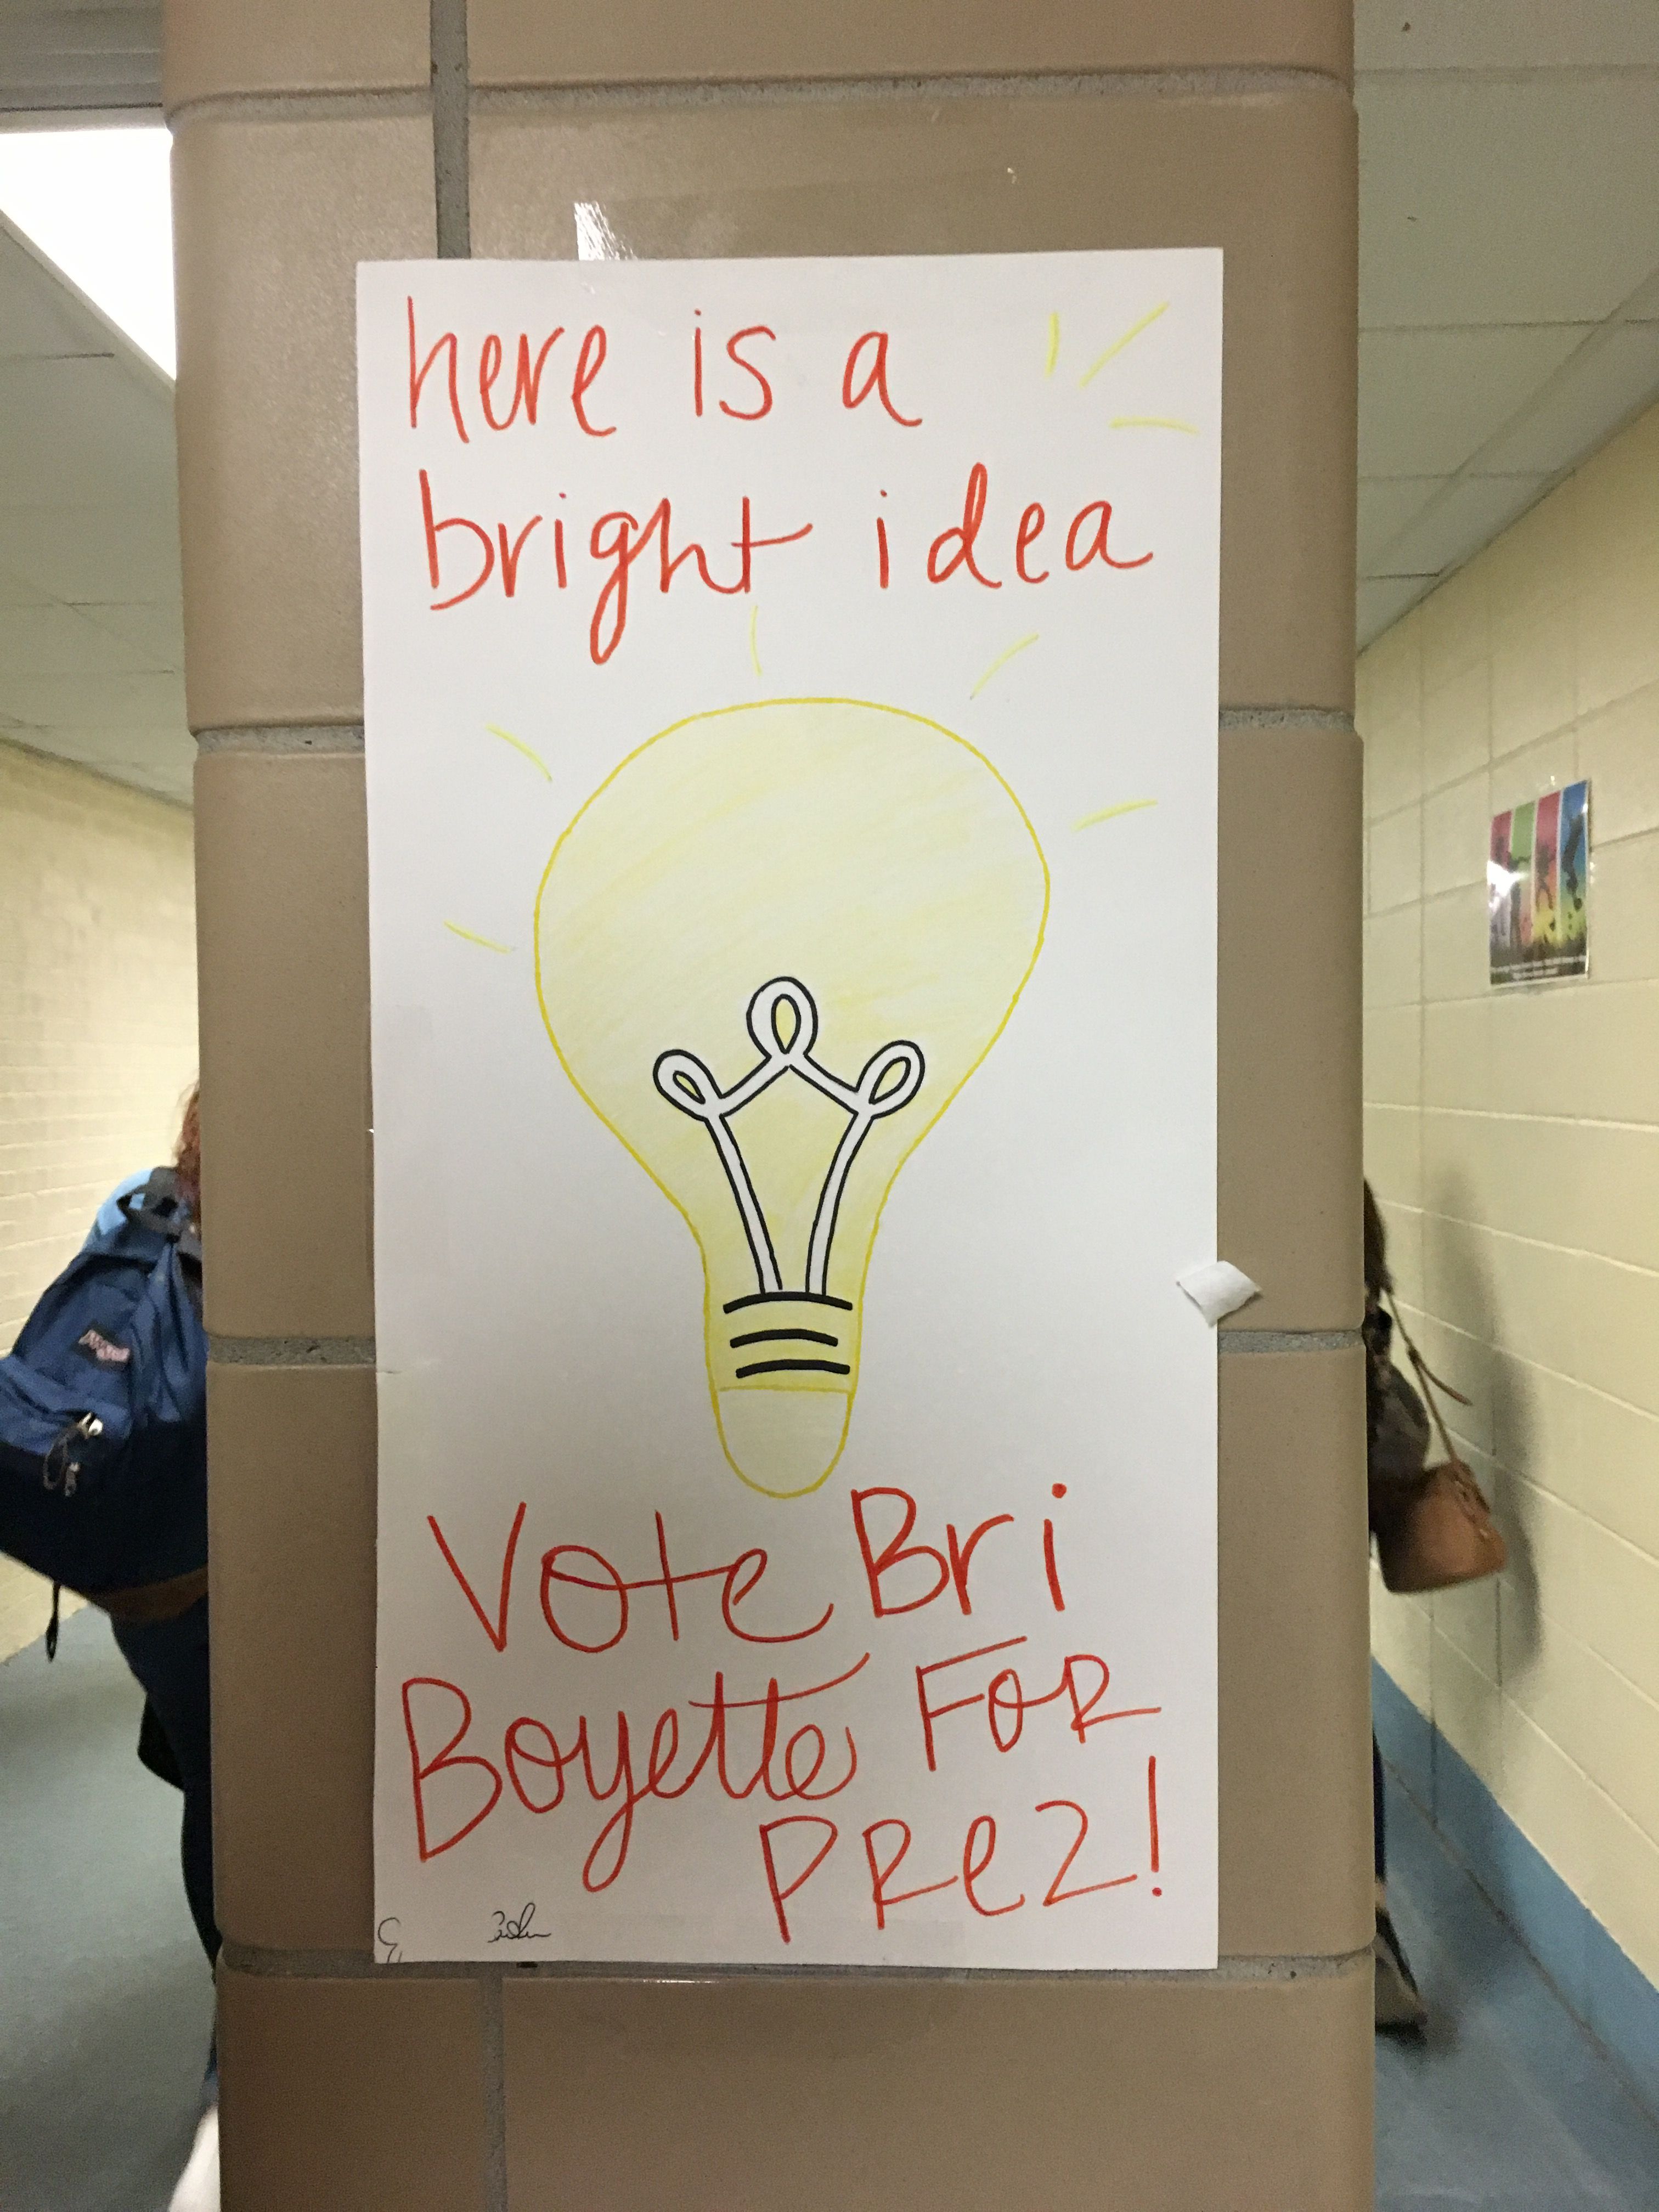 here is a
bright idea
Vote Bri
Boyette FOR
PRez!